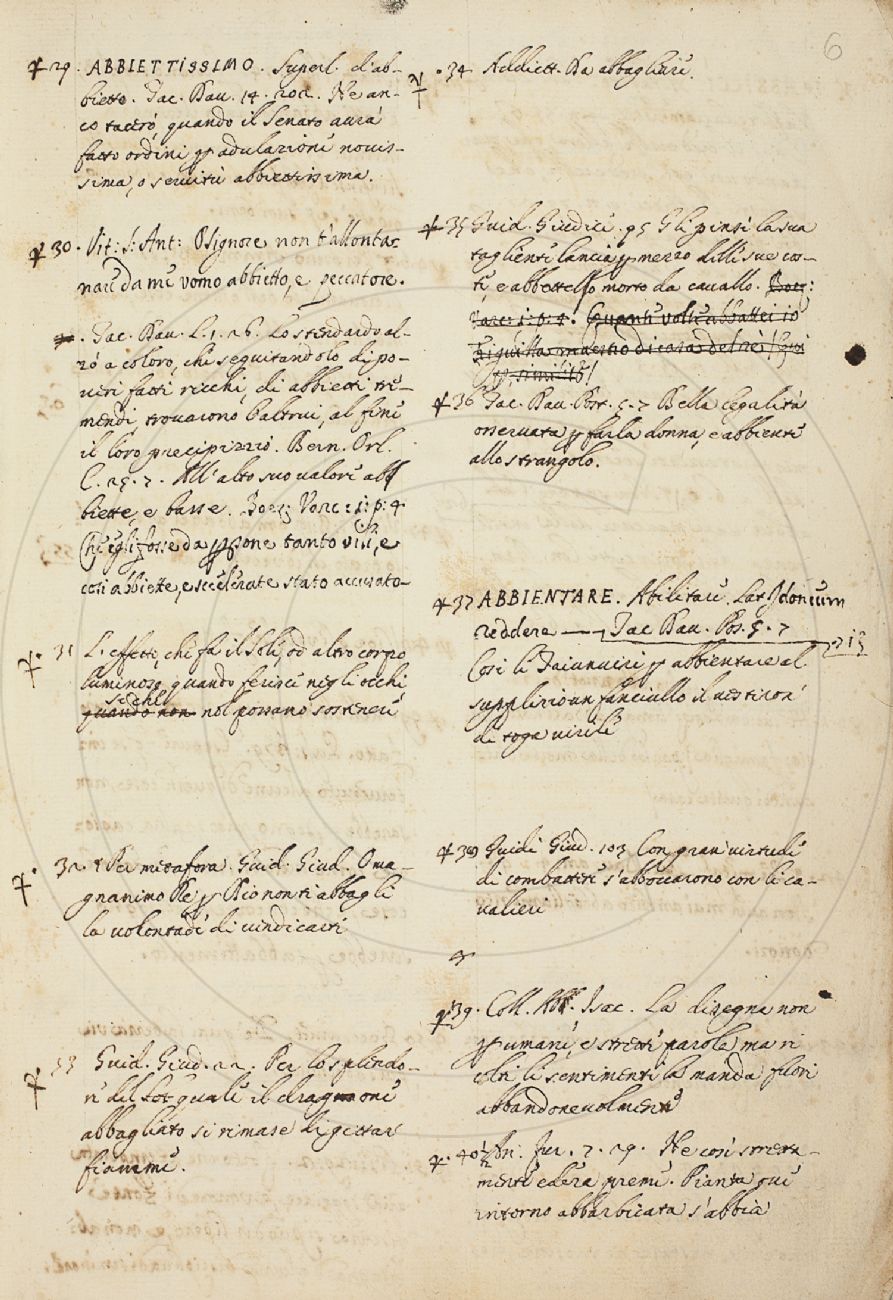 6
29. ABBIETTISSIMO. Superl. d'ab-
bietto. Tac. Dav. 14. 202. Ne an-
co tacerò, quando il Senato aurà
fatto ordini p adulazione nouis-
sima, o seruitù abbiettissima.
30. Vit: S: Ant: OSignore non t'allonta-
nare da me vomo abbietto, e peccatore.
Tac. Dav. L. 1. 26. Lo stendardo al-
zò a coloro, che seguitandolo di po-
ueri fatti ricchi, di abbietti tre-
mendi, trouarono l'altrui, al fine
il loro precipizzio. Bern. Orl.
2. 25. 2. All'alto suo valore abb
biette, e basse. Boez: Varc: 1: p: 4
Ch'egli fosse da psone tanto vili, e
così abbiette, e scelerate stato accusato-
31 L'effetto, che fà il Sole, od altro corpo
luminoso quando ferisce negli occhi
sichè
quando non nol possano sostenere
32. Per metafora. Guid. Giud. O ma-
gnanimo Re p Dio non ti abbagli
la volontade di vindicarti
33 Guid. Giud. 22. Per lo splendo-
re del quale il dragone
abbagliato si rimase di gittar
fiamme.
34 Addiett. Da abbagliare.
35 Guid. Giudice. 95 Gli pinse la sua
tagliente lancia p mezzo delle sue cos-
te, e abbattello morto da cauallo. Boez:
Varc: 1: p: 4. Quante volte abbattei io
36 Tac. Dav. Post. 5. 2 Bella legalità
osseruata p farla donna, e abbiente
allo strangolo.
37 ABBIENTARE. Abilitare. Lat Idoneum
reddere — Tac Dav. Pos. 5. 2
213
Così li Traiumviri p abbientare al
supplizio un fanciullo il uestiron'
di toga uirile
38 Guidi Giud. 103 Con gran uirtude
di combattere s'abboccarono con li ca-
ualieri
39. Coll. Ab. Isac. La disegna non
p umane, e strette parole ma ri
colti li sentimenti la manda fuori
abbandoneuolmente
40 Fur. 7. 29. Ne così stretta-
mente edera preme. Pianta oue
intorno abbarbicata s'abbia